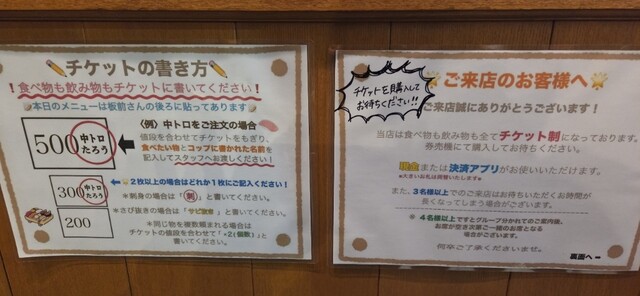 チケットの書き方
！食べ物も飲み物もチケットに書いてください！
本日のメニューは板前さんの後ろに貼ってあります
〈例〉中トロをご注文の場合
値段を合わせてチケットをもぎり、
食べたい物とコップに書かれた名前を
記入してスタッフへお渡しください！
500 中トロ
たろう
※2枚以上の場合はどれか1枚にご記入ください！
300 中トロ
たろう
*刺身の場合は「刺」と書いてください。
*さび抜きの場合「サビ抜き」と書いてください。
200
*同じ物を複数頼まれる場合は
チケットの値段を合わせて「×2(個数)」と
書いてください。
チケットを購入して
お待ちください!!
ご来店のお客様へ
ご来店誠にありがとうございます！
当店は食べ物も飲み物も全てチケット制になっております。
券売機にて購入してお待ちください。
現金または決済アプリがお使いいただけます。
※大きいお札は両替いたします※
また、3名様以上でのご来店はお待ちいただくお時間が
長くなってしまう場合がございます。
※4名様以上ですとグループ分かれてのご案内後、
お席が空き次第ご一緒のお席となる
場合がございます。
何卒ご了承くださいませ。
裏面へ➡